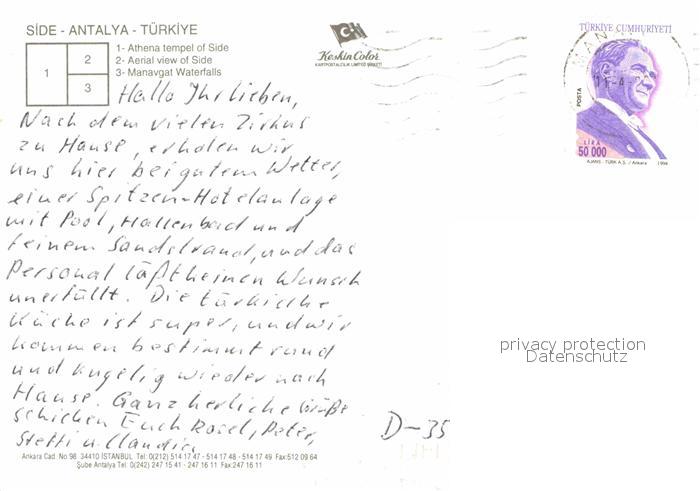 SİDE - ANTALYA - TÜRKİYE
1 2 3
1- Athena tempel of Side
2- Aerial view of Side
3- Manavgat Waterfalls
Keskin Color
KARTPOSTALCILIK LİMİTED ŞİRKETİ
TÜRKİYE CUMHURİYETİ
POSTA
LİRA
50 000
AJANS - TÜRK A.Ş. / Ankara 1998
Hallo Ihr lieben,
Nach dem vielen Zirkus
zu Hause, erholen wir
uns hier bei gutem Wetter,
einer Spitzen-Hotelanlage
mit Pool, Hallenbad und
feinem Sandstrand, und das
Personal läßt keinen Wunsch
unerfüllt. Die türkische
Küche ist super, und wir
kommen bestimmt rund
und kugelig wieder nach
Hause. Ganz herliche Grüße
schicken Euch Rosel, Peter,
Steffi u. Claudia
D-35
privacy protection
Datenschutz
Ankara Cad. No 98 34410 İSTANBUL Tel: 0(212) 514 17 47 - 514 17 48 - 514 17 49 Fax:512 09 64
Şube Antalya Tel: 0(242) 247 15 41 - 247 16 11 Fax:247 16 11